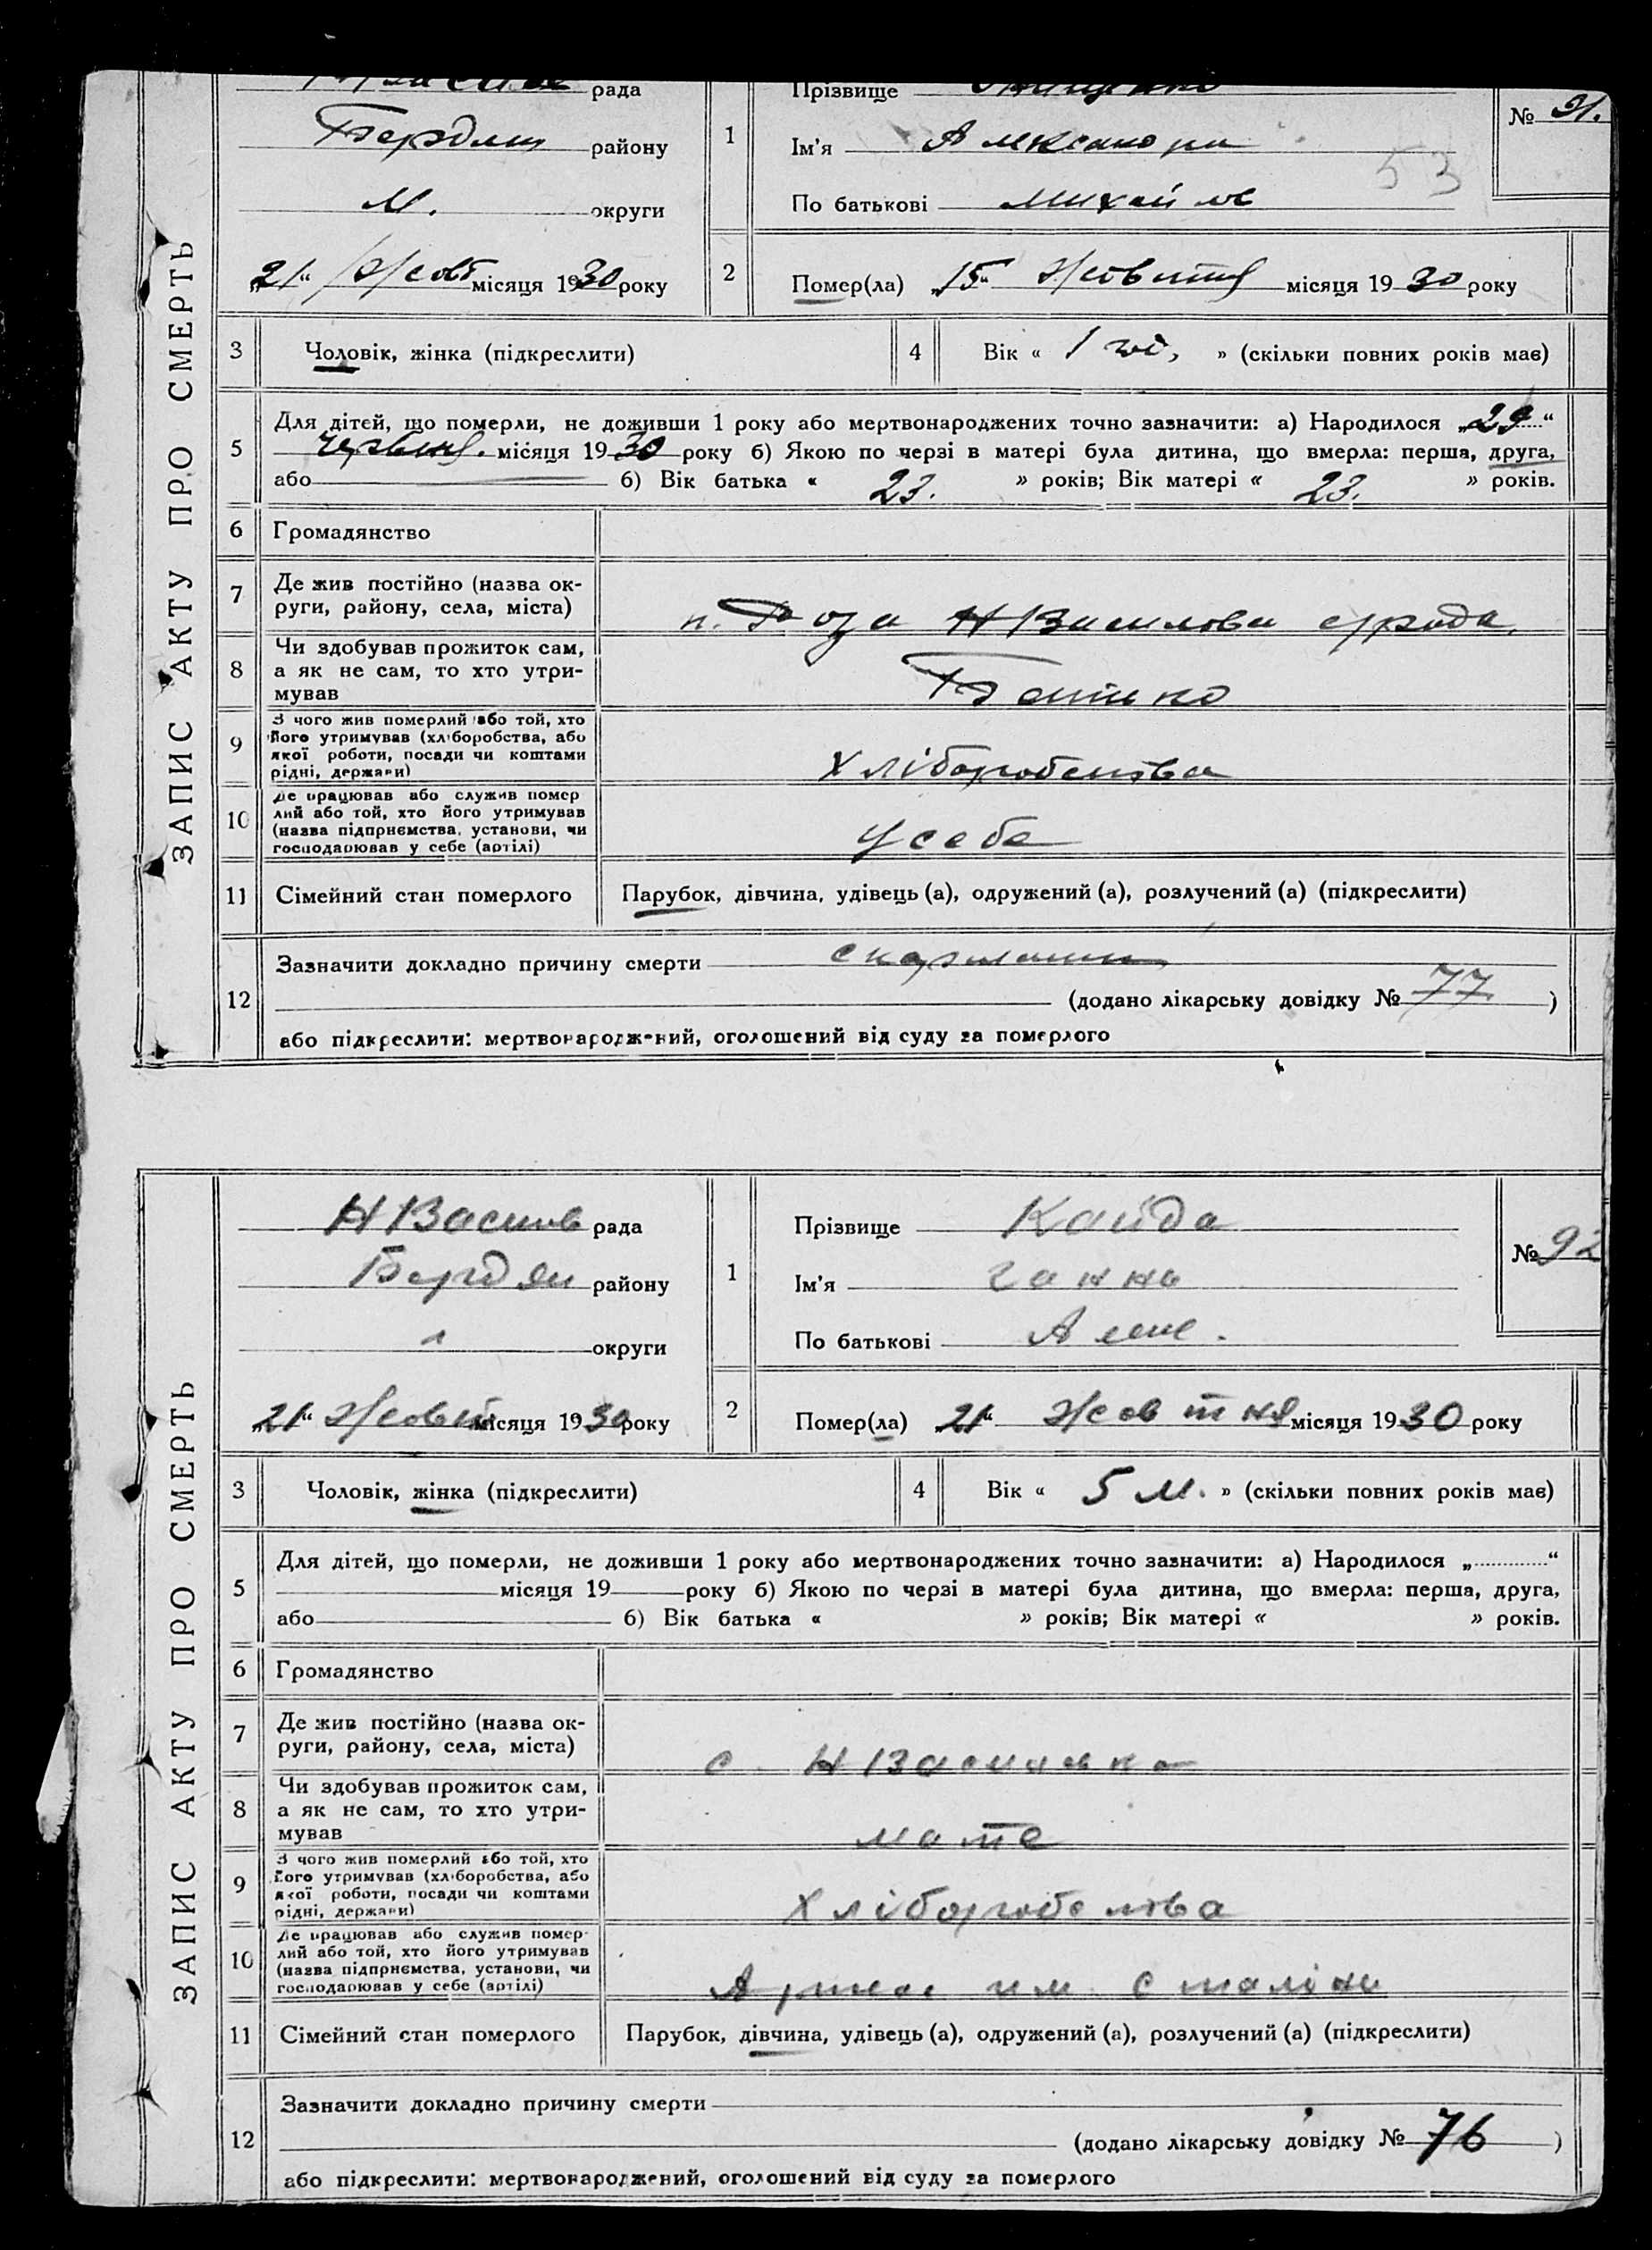 ЗАПИС АКТУ ПРО СМЕРТЬ
рада
района району
м. округи
„21“ Жовт місяця 1930 року
1
Прізвище
Ім'я Александра
По батькові Михайлов
№ 91.
53
2
Помер(ла) „15“ Жовтня місяця 1930 року
3
Чоловік, жінка (підкреслити)
4
Вік « 1 год, » (скільки повних років має)
5
Для дітей, що померли, не доживши 1 року або мертвонароджених точно зазначити: а) Народилося „29“
червня. місяця 1930 року б) Якою по черзі в матері була дитина, що вмерла: перша, друга,
або б) Вік батька « 23. » років; Вік матері « 23. » років.
6
Громадянство
7
Де жив постійно (назва ок-
руги, району, села, міста)
п. Роза НВасилівка с/рада
8
Чи здобував прожиток сам,
а як не сам, то хто утри-
мував
Батько
9
З чого жив померлий або той, хто
його утримував (хліборобства, або
якої роботи, посади чи коштами
рідні, держави)
Хліборобства
10
Де працював або служив помер
лий або той, хто його утримував
(назва підприємства, установи, чи
господарював у себе (артілі)
У себе
11
Сімейний стан померлого
Парубок, дівчина, удівець (а), одружений (а), розлучений (а) (підкреслити)
12
Зазначити докладно причину смерти скарлатин
(додано лікарську довідку № 77 )
або підкреслити: мертвонароджений, оголошений від суду за померлого
ЗАПИС АКТУ ПРО СМЕРТЬ
НВасилів рада
Бердян району
округи
„21“ Жовтн місяця 1930 року
1
Прізвище Кайда
Ім'я Ганна
По батькові
№ 92
2
Помер(ла) „21“ Жовтня місяця 1930 року
3
Чоловік, жінка (підкреслити)
4
Вік « 5 м. » (скільки повних років має)
5
Для дітей, що померли, не доживши 1 року або мертвонароджених точно зазначити: а) Народилося „ “
місяця 19 року б) Якою по черзі в матері була дитина, що вмерла: перша, друга,
або б) Вік батька « » років; Вік матері « » років.
6
Громадянство
7
Де жив постійно (назва ок-
руги, району, села, міста)
с. НВасилівка
8
Чи здобував прожиток сам,
а як не сам, то хто утри-
мував
мате
9
З чого жив померлий або той, хто
його утримував (хліборобства, або
якої роботи, посади чи коштами
рідні, держави)
Хліборобства
10
Де працював або служив помер-
лий або той, хто його утримував
(назва підприємства, установи, чи
господарював у себе (артілі)
Артіль им Сталіна
11
Сімейний стан померлого
Парубок, дівчина, удівець (а), одружений (а), розлучений (а) (підкреслити)
12
Зазначити докладно причину смерти
(додано лікарську довідку № 76 )
або підкреслити: мертвонароджений, оголошений від суду за померлого